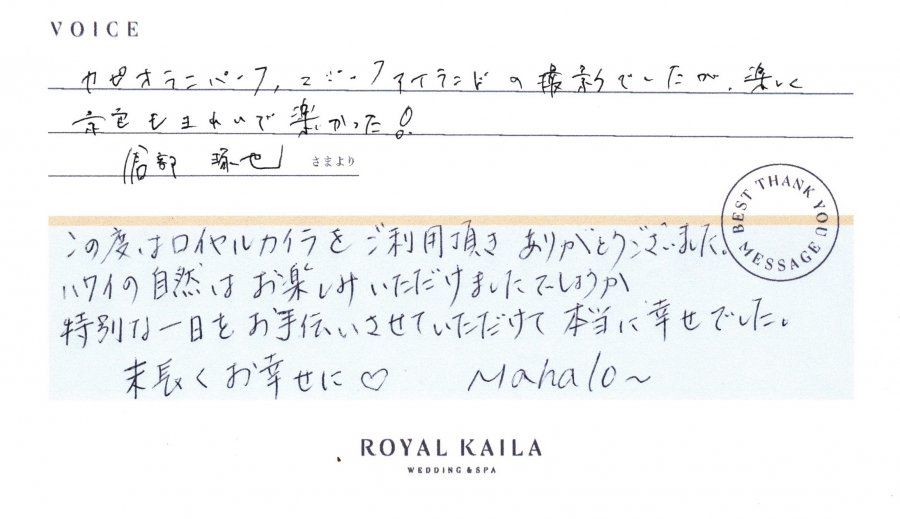 VOICE
カピオラニパーク, マジックアイランドの撮影でしたが、楽しく
景色もきれいで楽しかった!
部 琢也 さまより
BEST THANK YOU MESSAGE
この度はロイヤルカイラをご利用頂きありがとうございました。
ハワイの自然はお楽しみいただけましたでしょうか
特別な一日をお手伝いさせていただけて本当に幸せでした。
末長くお幸せに♡ Mahalo~
ROYAL KAILA
WEDDING & SPA